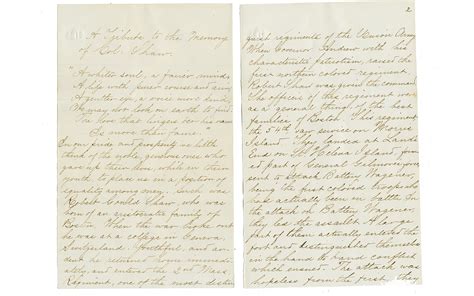 A Tribute to the Memory
of Col. Shaw.
"A whiter soul, a fairer mind,
A life with purer course and aim,
A gentler eye, a voice more kind,
We may not look on earth to find.
The love that lingers o'er his name
Is more than fame."
In our pride and prosperity we little
think of the noble, generous ones who
gave up their lives, while in their
youth to place us in a position of
equality among men. Such was
Robert Gould Shaw, who was
born of an aristocratic family of
Boston. When the war broke out
he was at a college in Geneva
Switzerland. Youthful and ardent
he returned home immedi-
ately, and entered the 2nd Mass.
Regiment, one of the most distin
2
guished regiments of the Union Army
When Governor Andrew with his
characteristic patriotism, raised the
first northern colored regiment,
Robert Shaw was given the command.
The officers of this regiment were
as a general thing of the best
families of Boston. This regiment
the 54th saw service on Morris
Island. They landed at Lands
End on St. Helena Island, from
a part of General Gillmore's
sent to attack Battery Wagener,
being the first colored troops who
have actually been in battle. In
the attack on Battery Wagener,
they led the assault. A large
part of them actually entered the
fort and distinguished themselves
in the hand to hand conflict
which ensued. The attack was
hopeless from the first. They